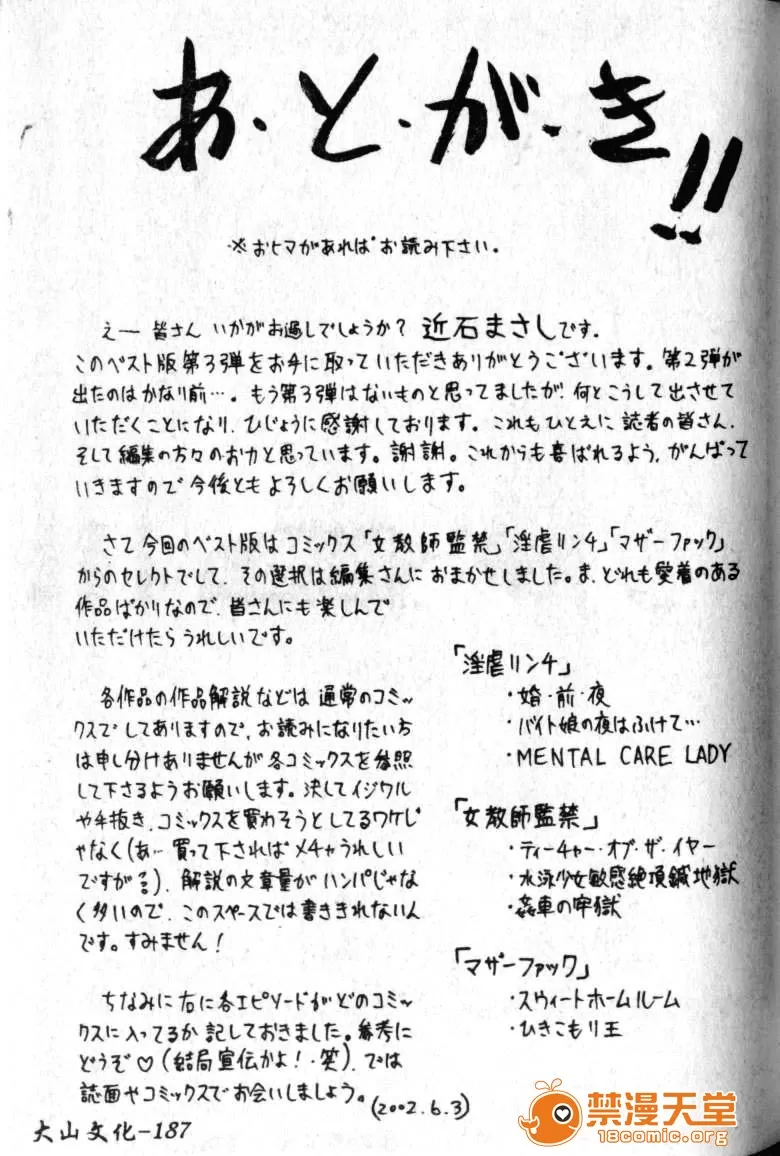 あ・と・が・き!!
※おヒマがあればお読み下さい。
えー 皆さん いかがお過しでしょうか? 近石まさしです.
このベスト版第3弾をお手に取っていただきありがとうございます。第2弾が
出たのはかなり前…。もう第3弾はないものと思ってましたが! 何とこうして出させて
いただくことになり、ひじょうに感謝しております。これもひとえに読者の皆さん、
そして編集の方々のお力と思っています。謝謝。これからも喜ばれるよう、がんばって
いきますので今後ともよろしくお願いします。
さて今回のベスト版はコミックス「女教師監禁」「淫虐リンチ」「マザーファック」
からのセレクトでして、その選択は編集さんにおまかせしました。ま、どれも愛着のある
作品ばかりなので、皆さんにも楽しんで
いただけたらうれしいです。
各作品の作品解説などは 通常のコミッ
クスでしてありますので、お読みになりたい方
は申し分けありませんが各コミックスを参照
して下さるようお願いします。決してイジワル
や手抜き、コミックスを買わそうとしてるワケじ
ゃなく(あ… 買って下さればメチャうれしい
ですが)、解説の文章量がハンパじゃな
く多いので、このスペースでは書ききれないん
です。すみません!
ちなみに右に各エピソードがどのコミッ
クスに入ってるか記しておきました。参考に
どうぞ♡(結局宣伝かよ!・笑)、では
誌面やコミックスでお会いしましょう。(2002.6.3)
「淫虐リンチ」
・婚・前・夜
・バイト娘の夜はふけて…
・MENTAL CARE LADY
「女教師監禁」
・ティーチャー・オブ・ザ・イヤー
・水泳少女敏感絶頂鍼地獄
・姦車の牢獄
「マザーファック」
・スウィートホームルーム
・ひきこもり王
大山文化-187
禁漫天堂
18comic.org